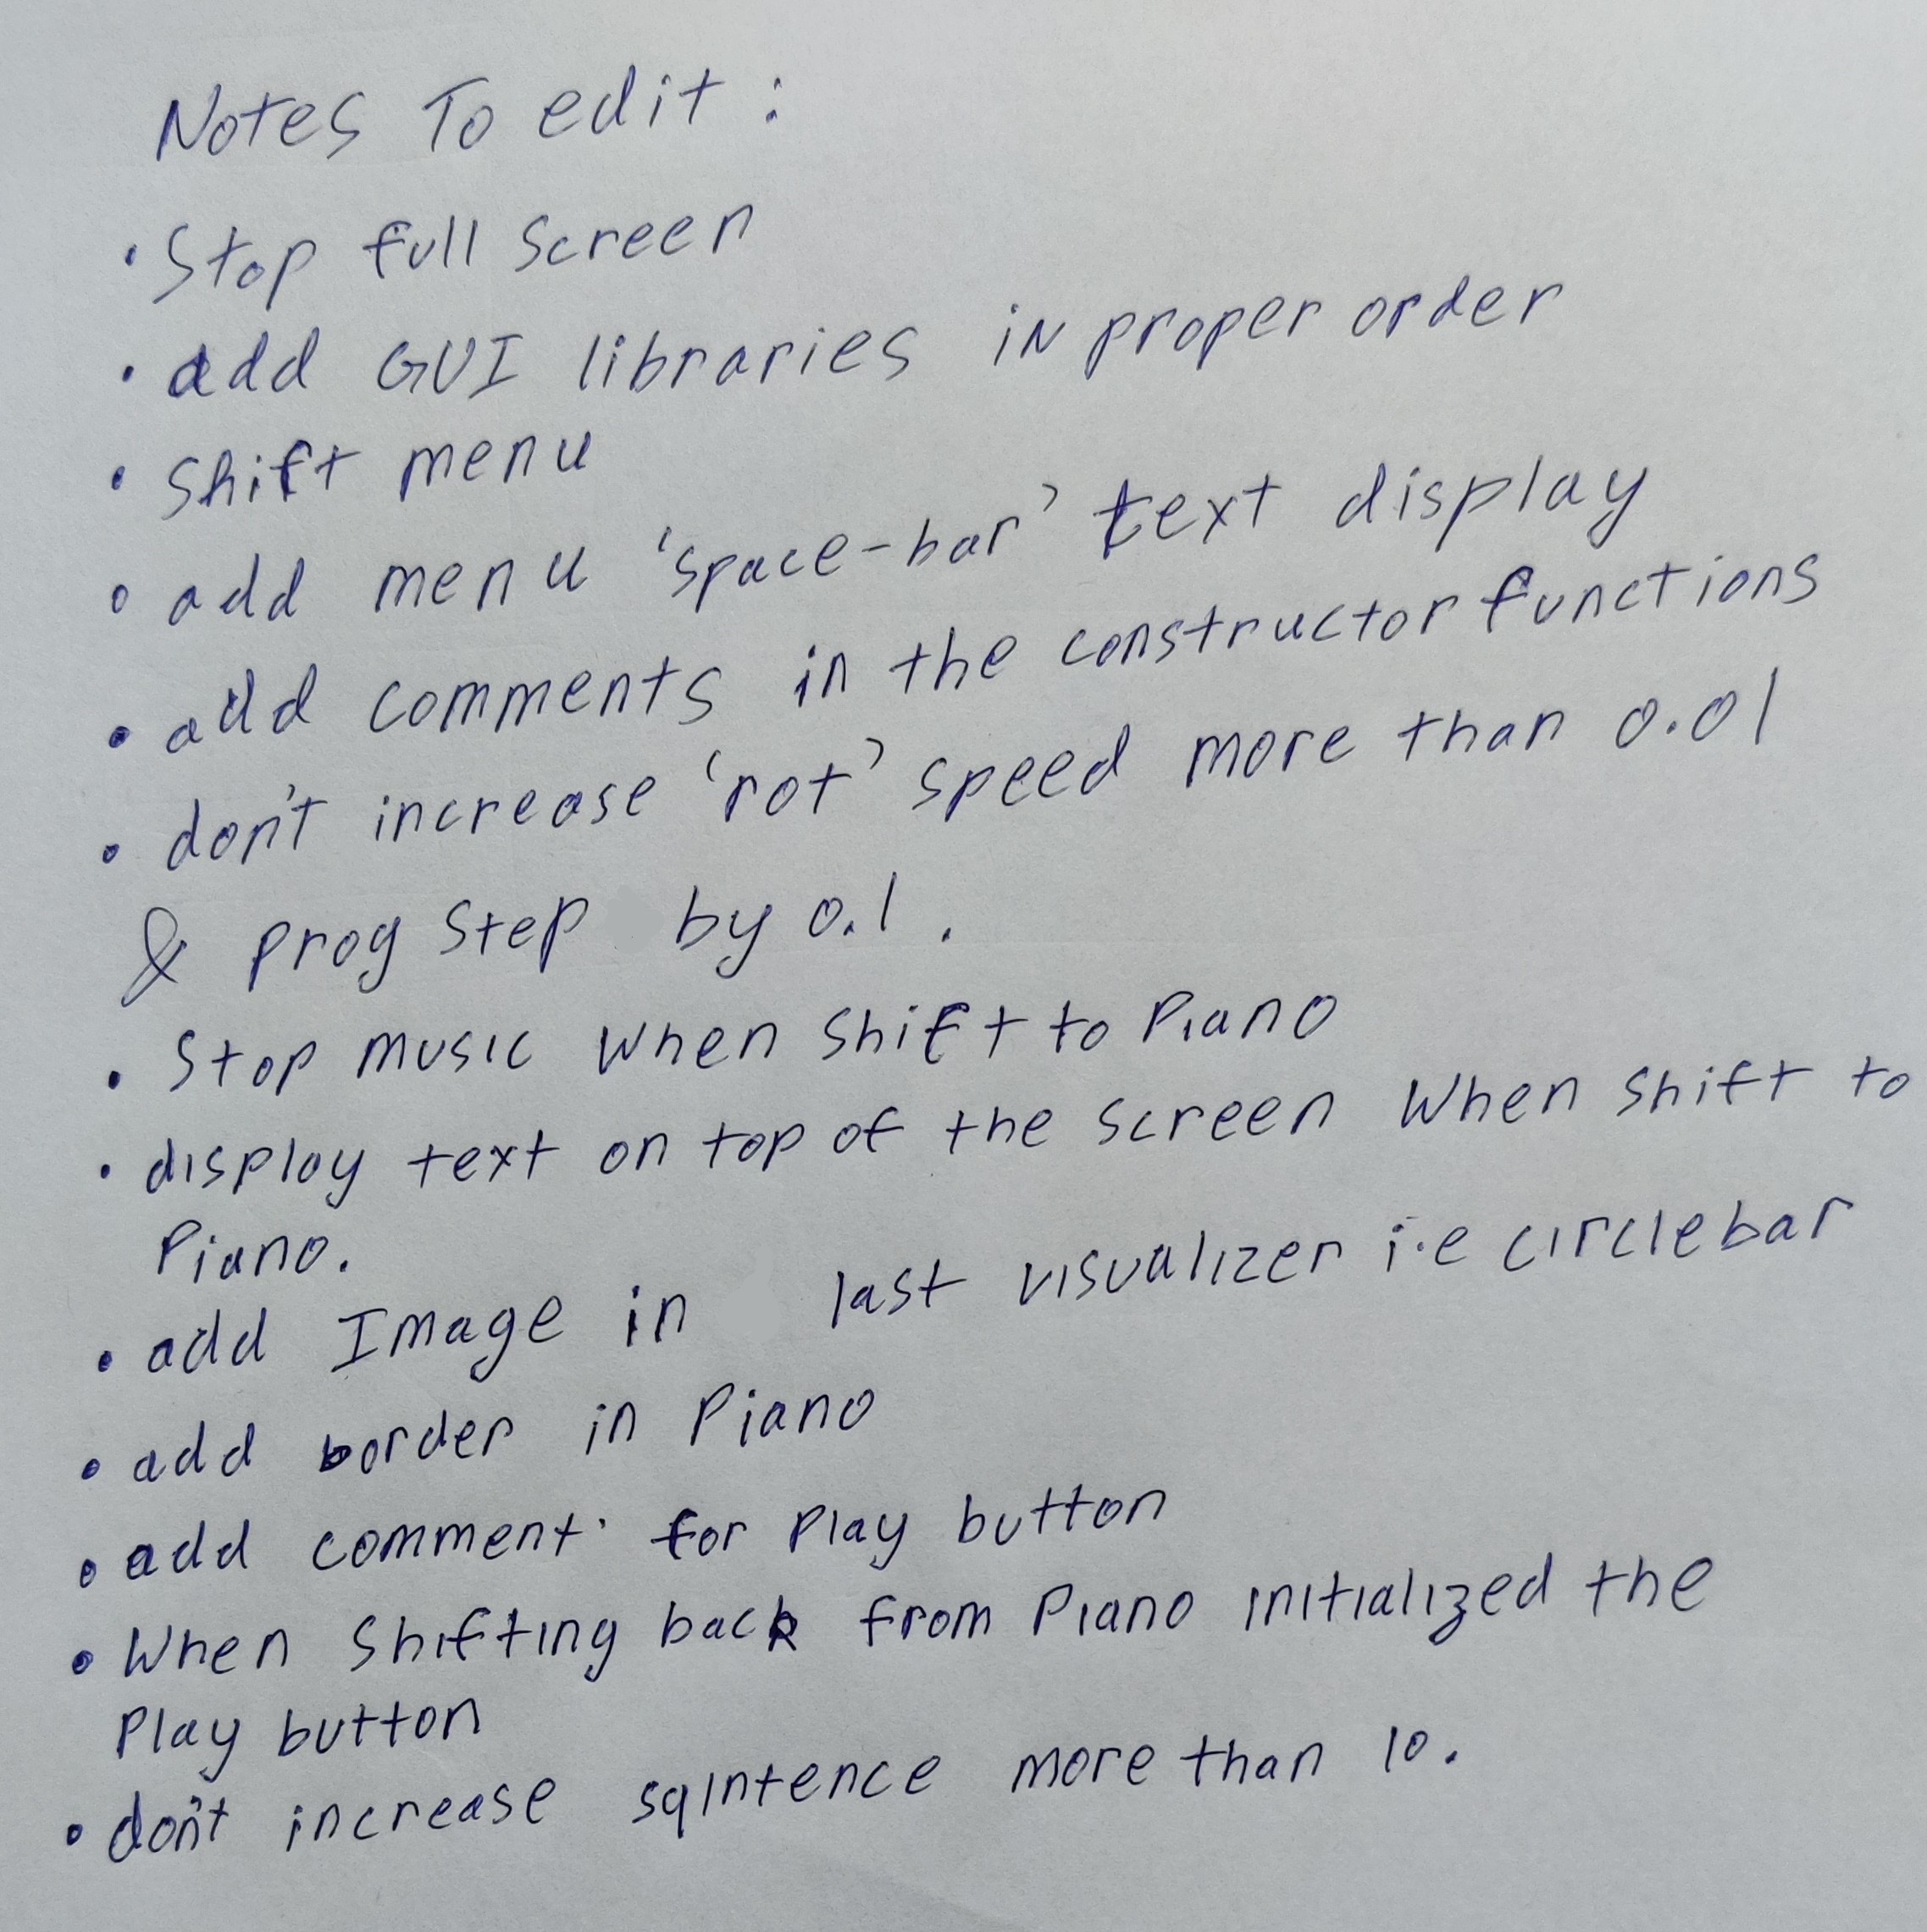 Notes To edit :
• Stop full Screen
• add GUI libraries in proper order
• Shift menu
• add menu 'space-bar' text display
• add comments in the constructor functions
• don't increase 'rot' speed more than 0.01
& prog Step by 0.1 .
• Stop music when shift to Piano
• display text on top of the screen When shift to
Piano.
• add Image in last visualizer i.e circlebar
• add border in Piano
• add comment for Play button
• When Shifting back from Piano initialized the
Play button
• don't increase sqIntence more than 10.